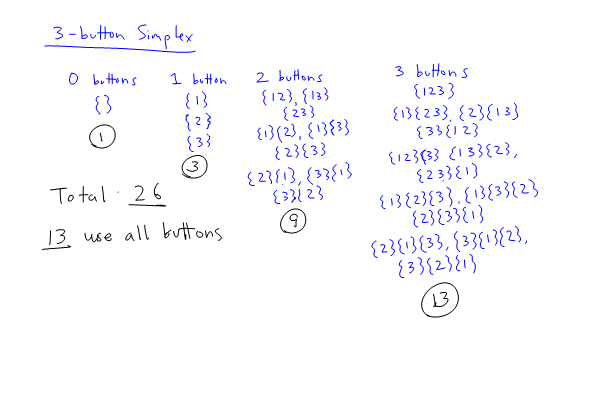 3-button Simplex
0 buttons
{}
1
1 button
{1}
{2}
{3}
3
2 buttons
{12}, {13}
{23}
{1}{2}, {1}{3}
{2}{3}
{2}{1}, {3}{1}
{3}{2}
9
3 buttons
{123}
{1}{23}, {2}{13}
{3}{12}
{12}{3} {13}{2},
{23}{1}
{1}{2}{3}, {1}{3}{2}
{2}{3}{1}
{2}{1}{3}, {3}{1}{2},
{3}{2}{1}
13
Total: 26
13 use all buttons